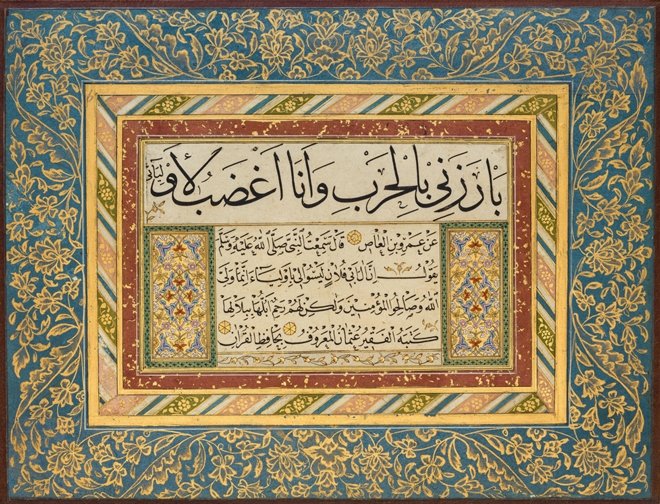 بَارَزَنِي بِالْحَرْبِ وَأَنَا أَغْضَبُ لِأَوْلِيَائِي
عَنْ عَمْرِو بْنِ الْعَاصِ قَالَ سَمِعْتُ النَّبِيَّ صَلَّى اللهُ عَلَيْهِ وَسَلَّمَ
يَقُولُ إِنَّ آلَ أَبِي فُلَانٍ لَيْسُوا لِي بِأَوْلِيَاءَ إِنَّمَا وَلِيِّيَ
اللهُ وَصَالِحُ الْمُؤْمِنِينَ وَلَكِنْ لَهُمْ رَحِمٌ أَبُلُّهَا بِبِلَالِهَا
كَتَبَهُ الْفَقِيرُ عُثْمَانُ الْمَعْرُوفُ بِحَافِظِ الْقُرْآنِ